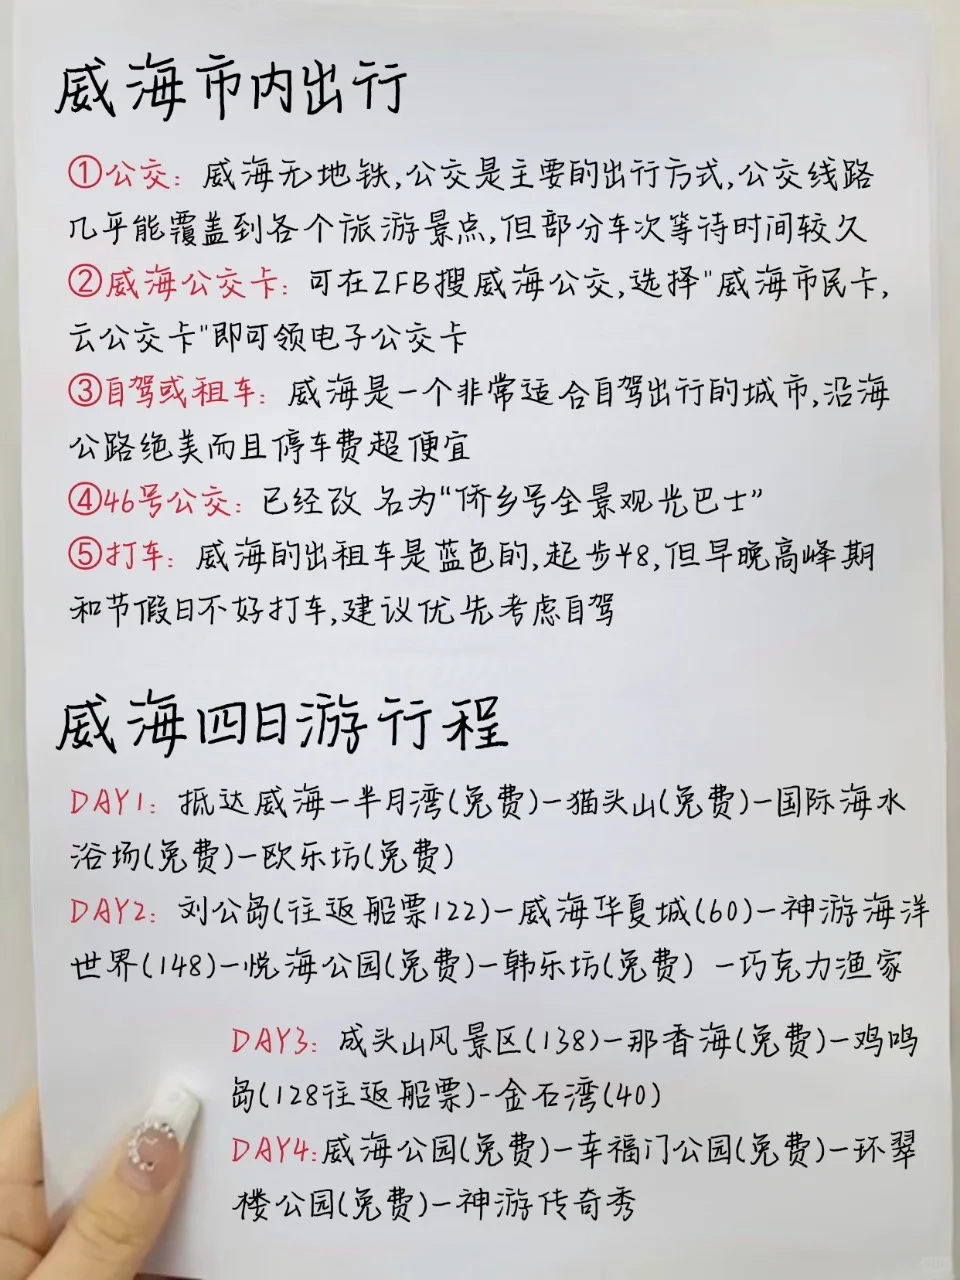 威海市内出行
①公交：威海无地铁,公交是主要的出行方式,公交线路
几乎能覆盖到各个旅游景点,但部分车次等待时间较久
②威海公交卡：可在ZFB搜威海公交,选择"威海市民卡,
云公交卡"即可领电子公交卡
③自驾或租车：威海是一个非常适合自驾出行的城市,沿海
公路绝美而且停车费超便宜
④46号公交：已经改名为“侨乡号全景观光巴士”
⑤打车：威海的出租车是蓝色的,起步¥8,但早晚高峰期
和节假日不好打车,建议优先考虑自驾
威海四日游行程
DAY1：抵达威海-半月湾(免费)-猫头山(免费)-国际海水
浴场(免费)-欧乐坊(免费)
DAY2：刘公岛(往返船票122)-威海华夏城(60)-神游海洋
世界(148)-悦海公园(免费)-韩乐坊(免费)-巧克力渔家
DAY3：成头山风景区(138)-那香海(免费)-鸡鸣
岛(128往返船票)-金石湾(40)
DAY4:威海公园(免费)-幸福门公园(免费)-环翠
楼公园(免费)-神游传奇秀